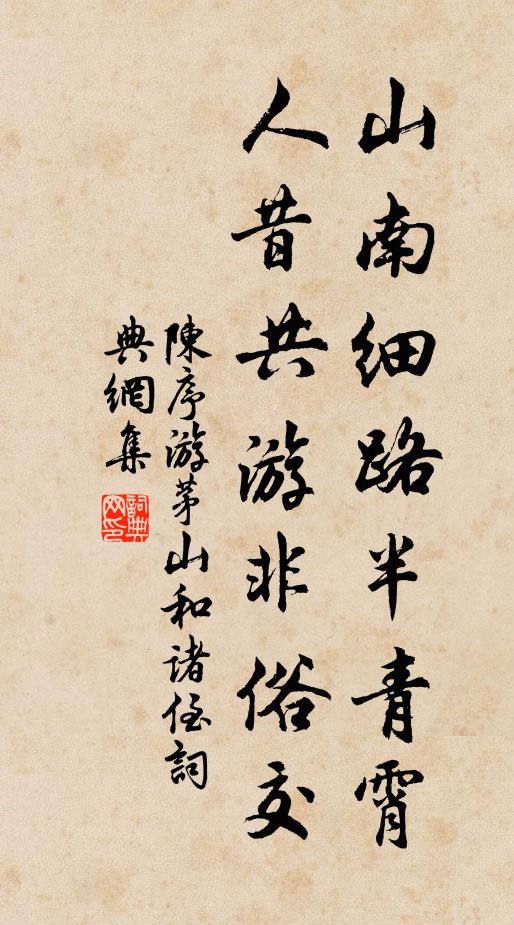 山南細路半青霄
人昔共游非俗交
陳序游茅山和諸侄詞
典網集
詞典網印